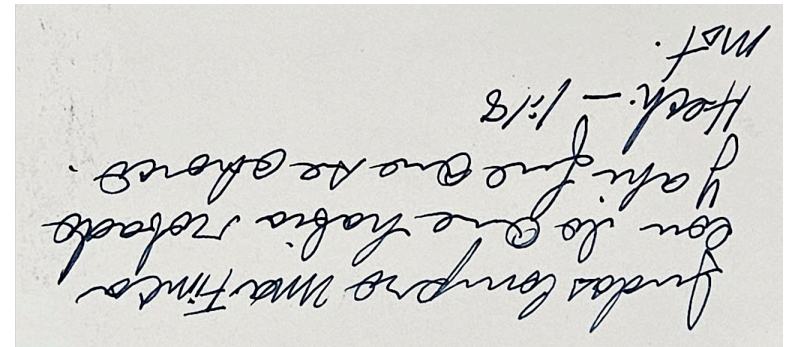 Judas Compro una Finca
Con lo Que habia robado
y ahi fue Que se ahorco.
Hech. - 1:18
Mat.